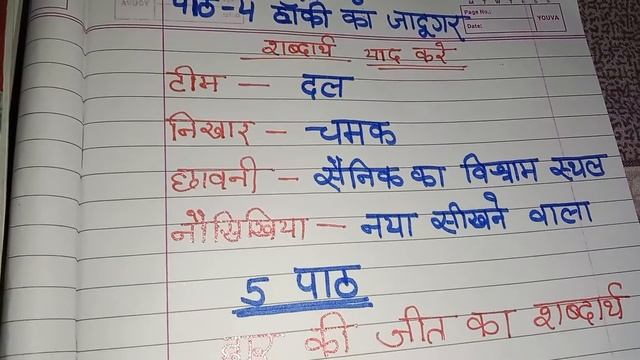 पाठ-4 हॉकी का जादूगर
Page No.:
Date:
YOUVA
शब्दार्थ याद करे
टीम — दल
निखार — चमक
छावनी — सैनिक का विश्राम स्थल
नौसिखिया — नया सीखने वाला
5 पाठ
हार की जीत का शब्दार्थ